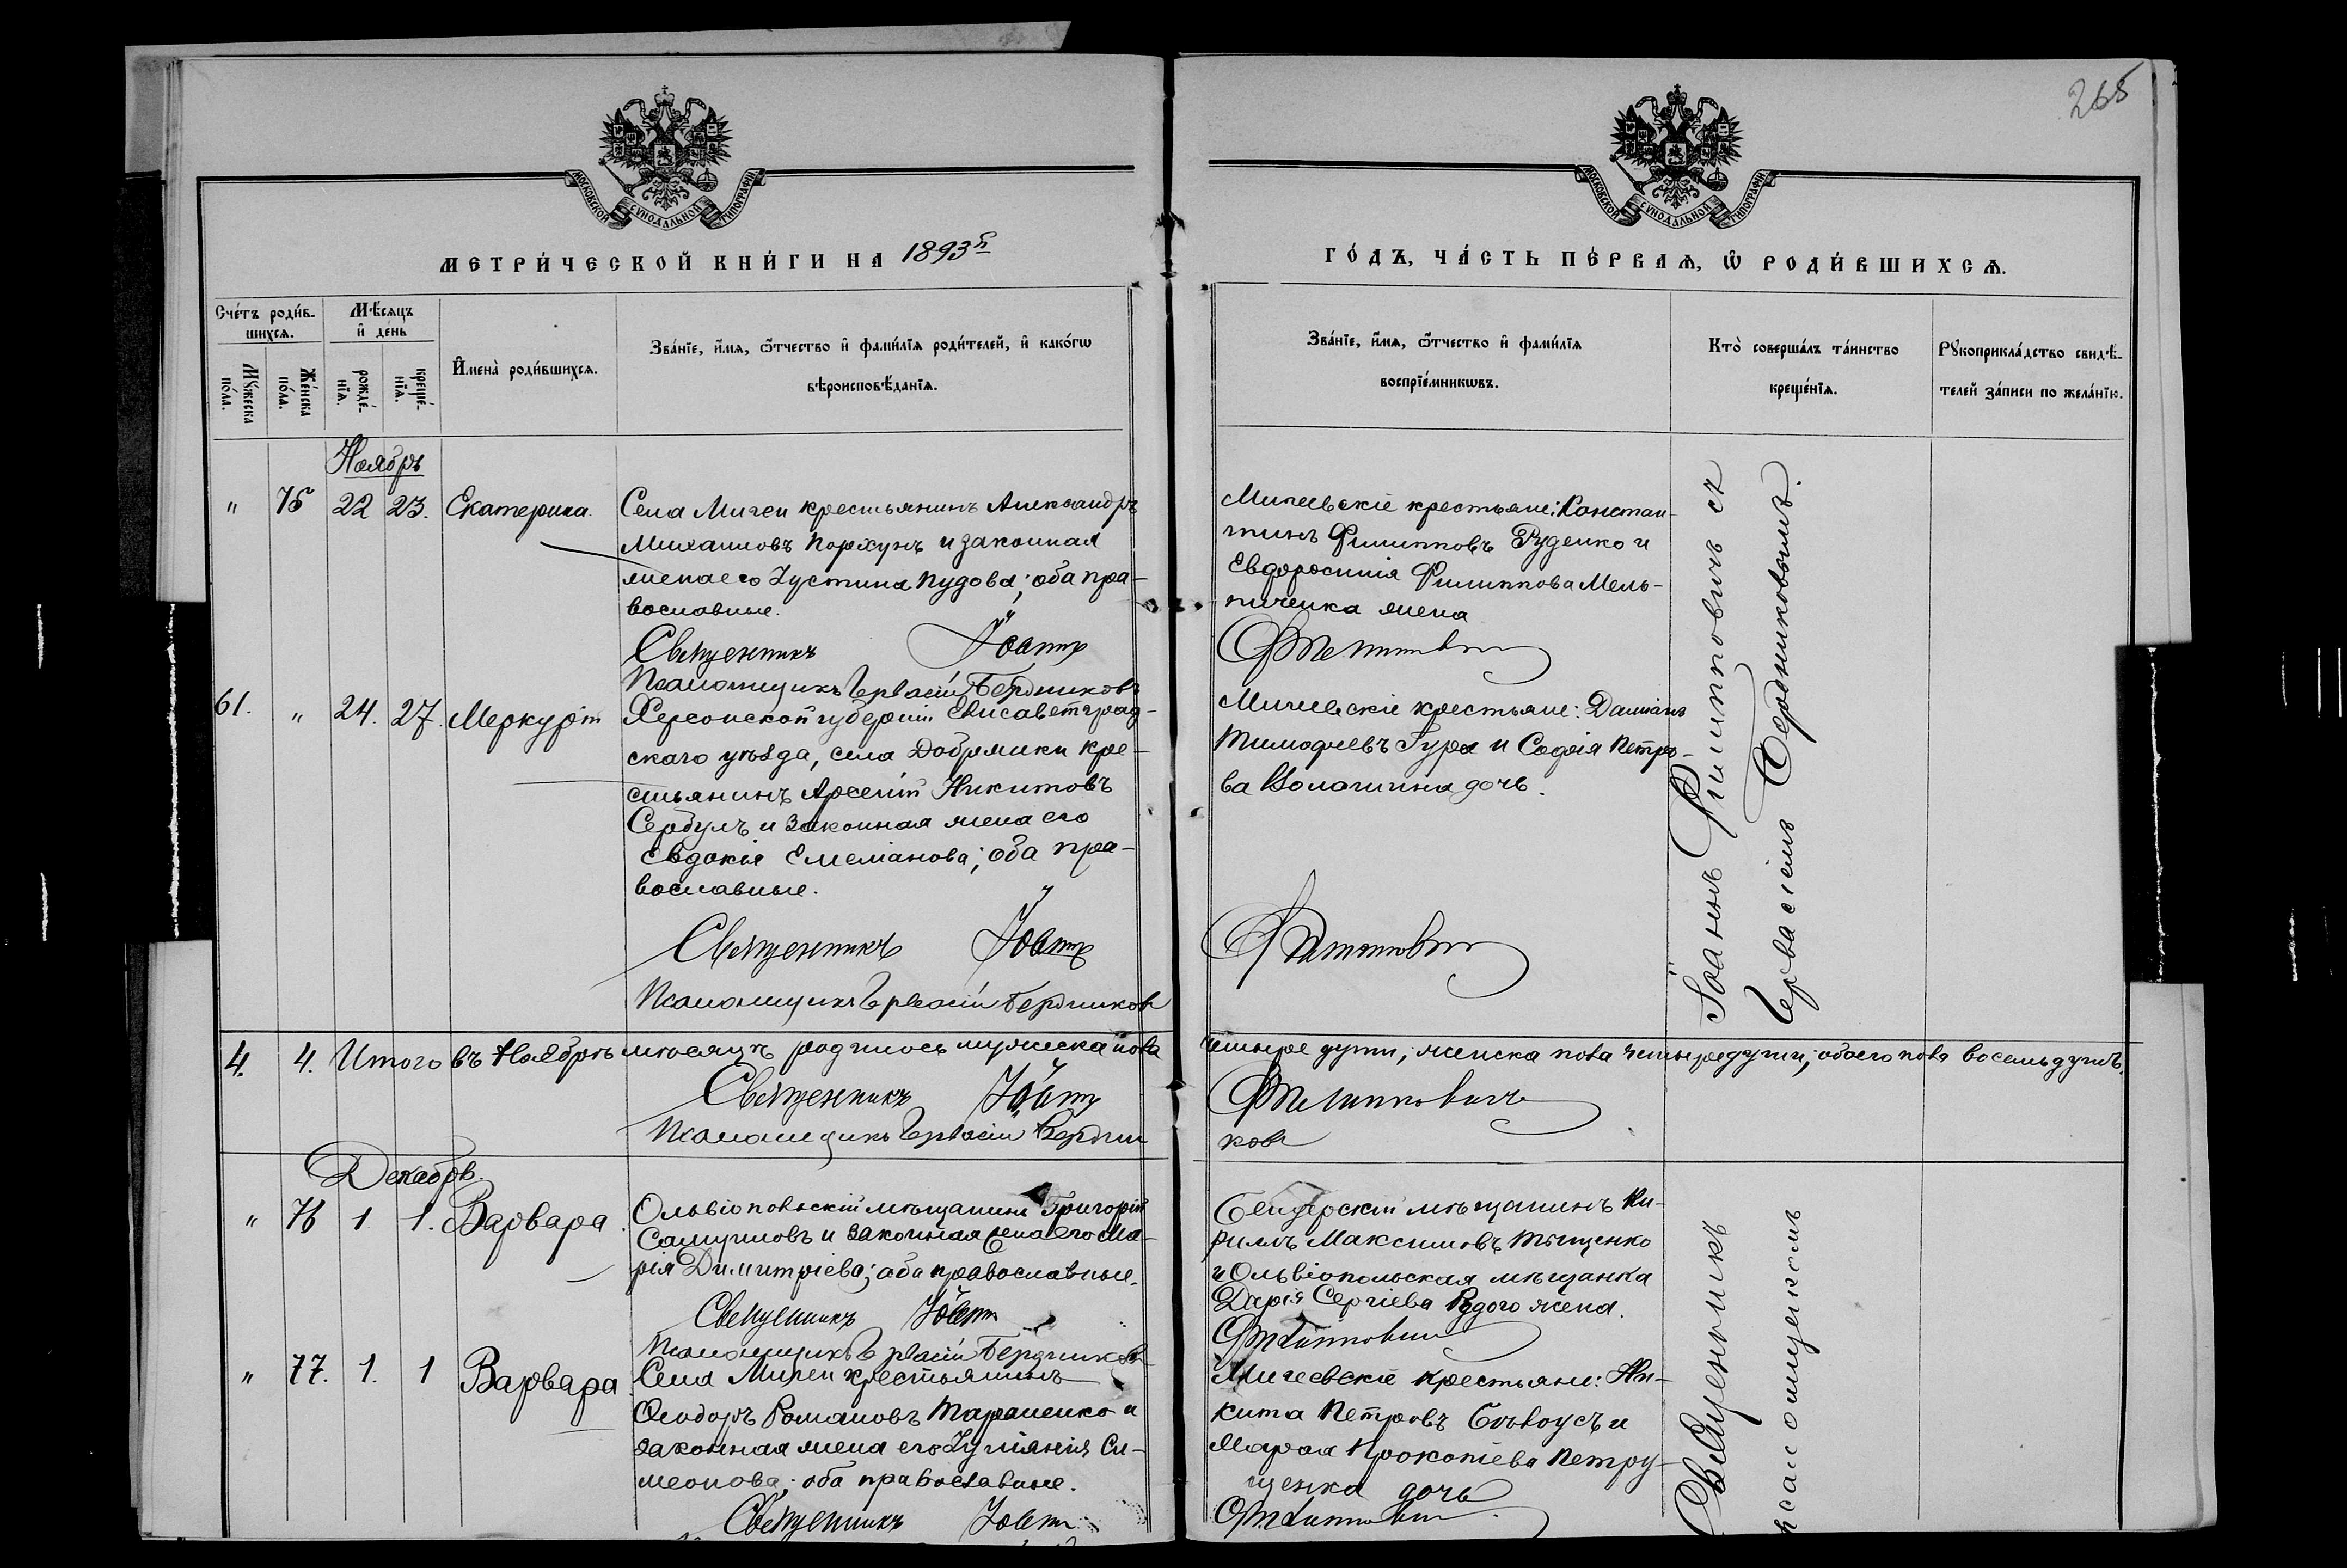 265
МОСКОВСКОЙ СѴНОДАЛЬНОЙ ТИПОГРАФІИ
МОСКОВСКОЙ СѴНОДАЛЬНОЙ ТИПОГРАФІИ
МЕТРИ́ЧЕСКОЙ КНИ́ГИ НА 1893й
ГО́ДЪ, ЧА́СТЬ ПЕ́РВАѦ, Ѽ РОДИ́ВШИХСѦ.
Сче́тъ роди́в-
шихсѧ.
Мꙋ́жеска
по́ла.
Же́нска
по́ла.
Мѣ́сѧцъ
и҆ де́нь
рожде́-
нїѧ.
креще́-
нїѧ.
И҆мена̀ роди́вшихсѧ.
Зва́нїе, и҆́мѧ, ѻ҆́тчество и҆ фами́лїѧ роди́телей, и҆ како́гѡ
вѣроисповѣ́данїѧ.
Зва́нїе, и҆́мѧ, ѻ҆́тчество и҆ фами́лїѧ
воспрїе́мникѡвъ.
Кто̀ соверша́лъ та́инство
креще́нїѧ.
Рꙋкоприкла́дство свидѣ́-
телей за́писи по жела́нїю.
Ноябрь
" 75 22 23. Екатерина.
Села Мигеи крестьянинъ Александръ
Михаиловъ Порхунъ и законная
жена его Іустина Пудова; оба пра-
вославные.
Священникъ Іоаннъ
Псаломщикъ Гервасій Бердниковъ
Мигеевскіе крестьяне: Констан-
тинъ Филипповъ Руденко и
Евфросинія Филиппова Мель-
ниченка жена
Филипповичъ
61. " 24. 27. Меркурій
Херсонской губерніи Елисаветград-
скаго уѣзда, села Добрянки кре-
стьянинъ Арсеній Никитовъ
Сербулъ и законная жена его
Евдокія Емеліанова; оба пра-
вославные.
Священникъ Іоаннъ
Псаломщикъ Гервасій Бердниковъ
Мигеевскіе крестьяне: Даміанъ
Тимофеевъ Гура и Софія Петро-
ва Волошина дочь.
Филипповичъ
Іоаннъ Филипповичъ съ
Гервасіемъ Бердниковымъ.
4. 4. Итого въ Ноябрѣ мѣсяцѣ родилось мужеска пола
четыре души, женска пола четыре души, обоего пола восемь душъ.
Священникъ Іоаннъ
Филипповичъ
Псаломщикъ Гервасій Бердни
ковъ
Декабрь
" 76 1 1. Варвара.
Ольвіопольскій мѣщанинъ Григорій
Самуиловъ и законная жена его Ма-
рія Димитріева; оба православные.
Священникъ Іоаннъ
Псаломщикъ Гервасій Бердниковъ
Бендерскій мѣщанинъ Ки-
риллъ Максимовъ Тищенко
и Ольвіопольская мѣщанка
Дарія Сергіева Рудого жена.
Филипповичъ
" 77. 1. 1 Варвара
Села Мигеи крестьянинъ
Ѳеодоръ Романовъ Тараненко и
законная жена его Іуліанія Си-
меонова; оба православные.
Священникъ Іоаннъ
Мигеевскіе крестьяне: Ни-
кита Петровъ Бѣлоусъ и
Марѳа Прокопіева Петру-
щенка дочь
Филипповичъ
Священникъ
псаломщикомъ